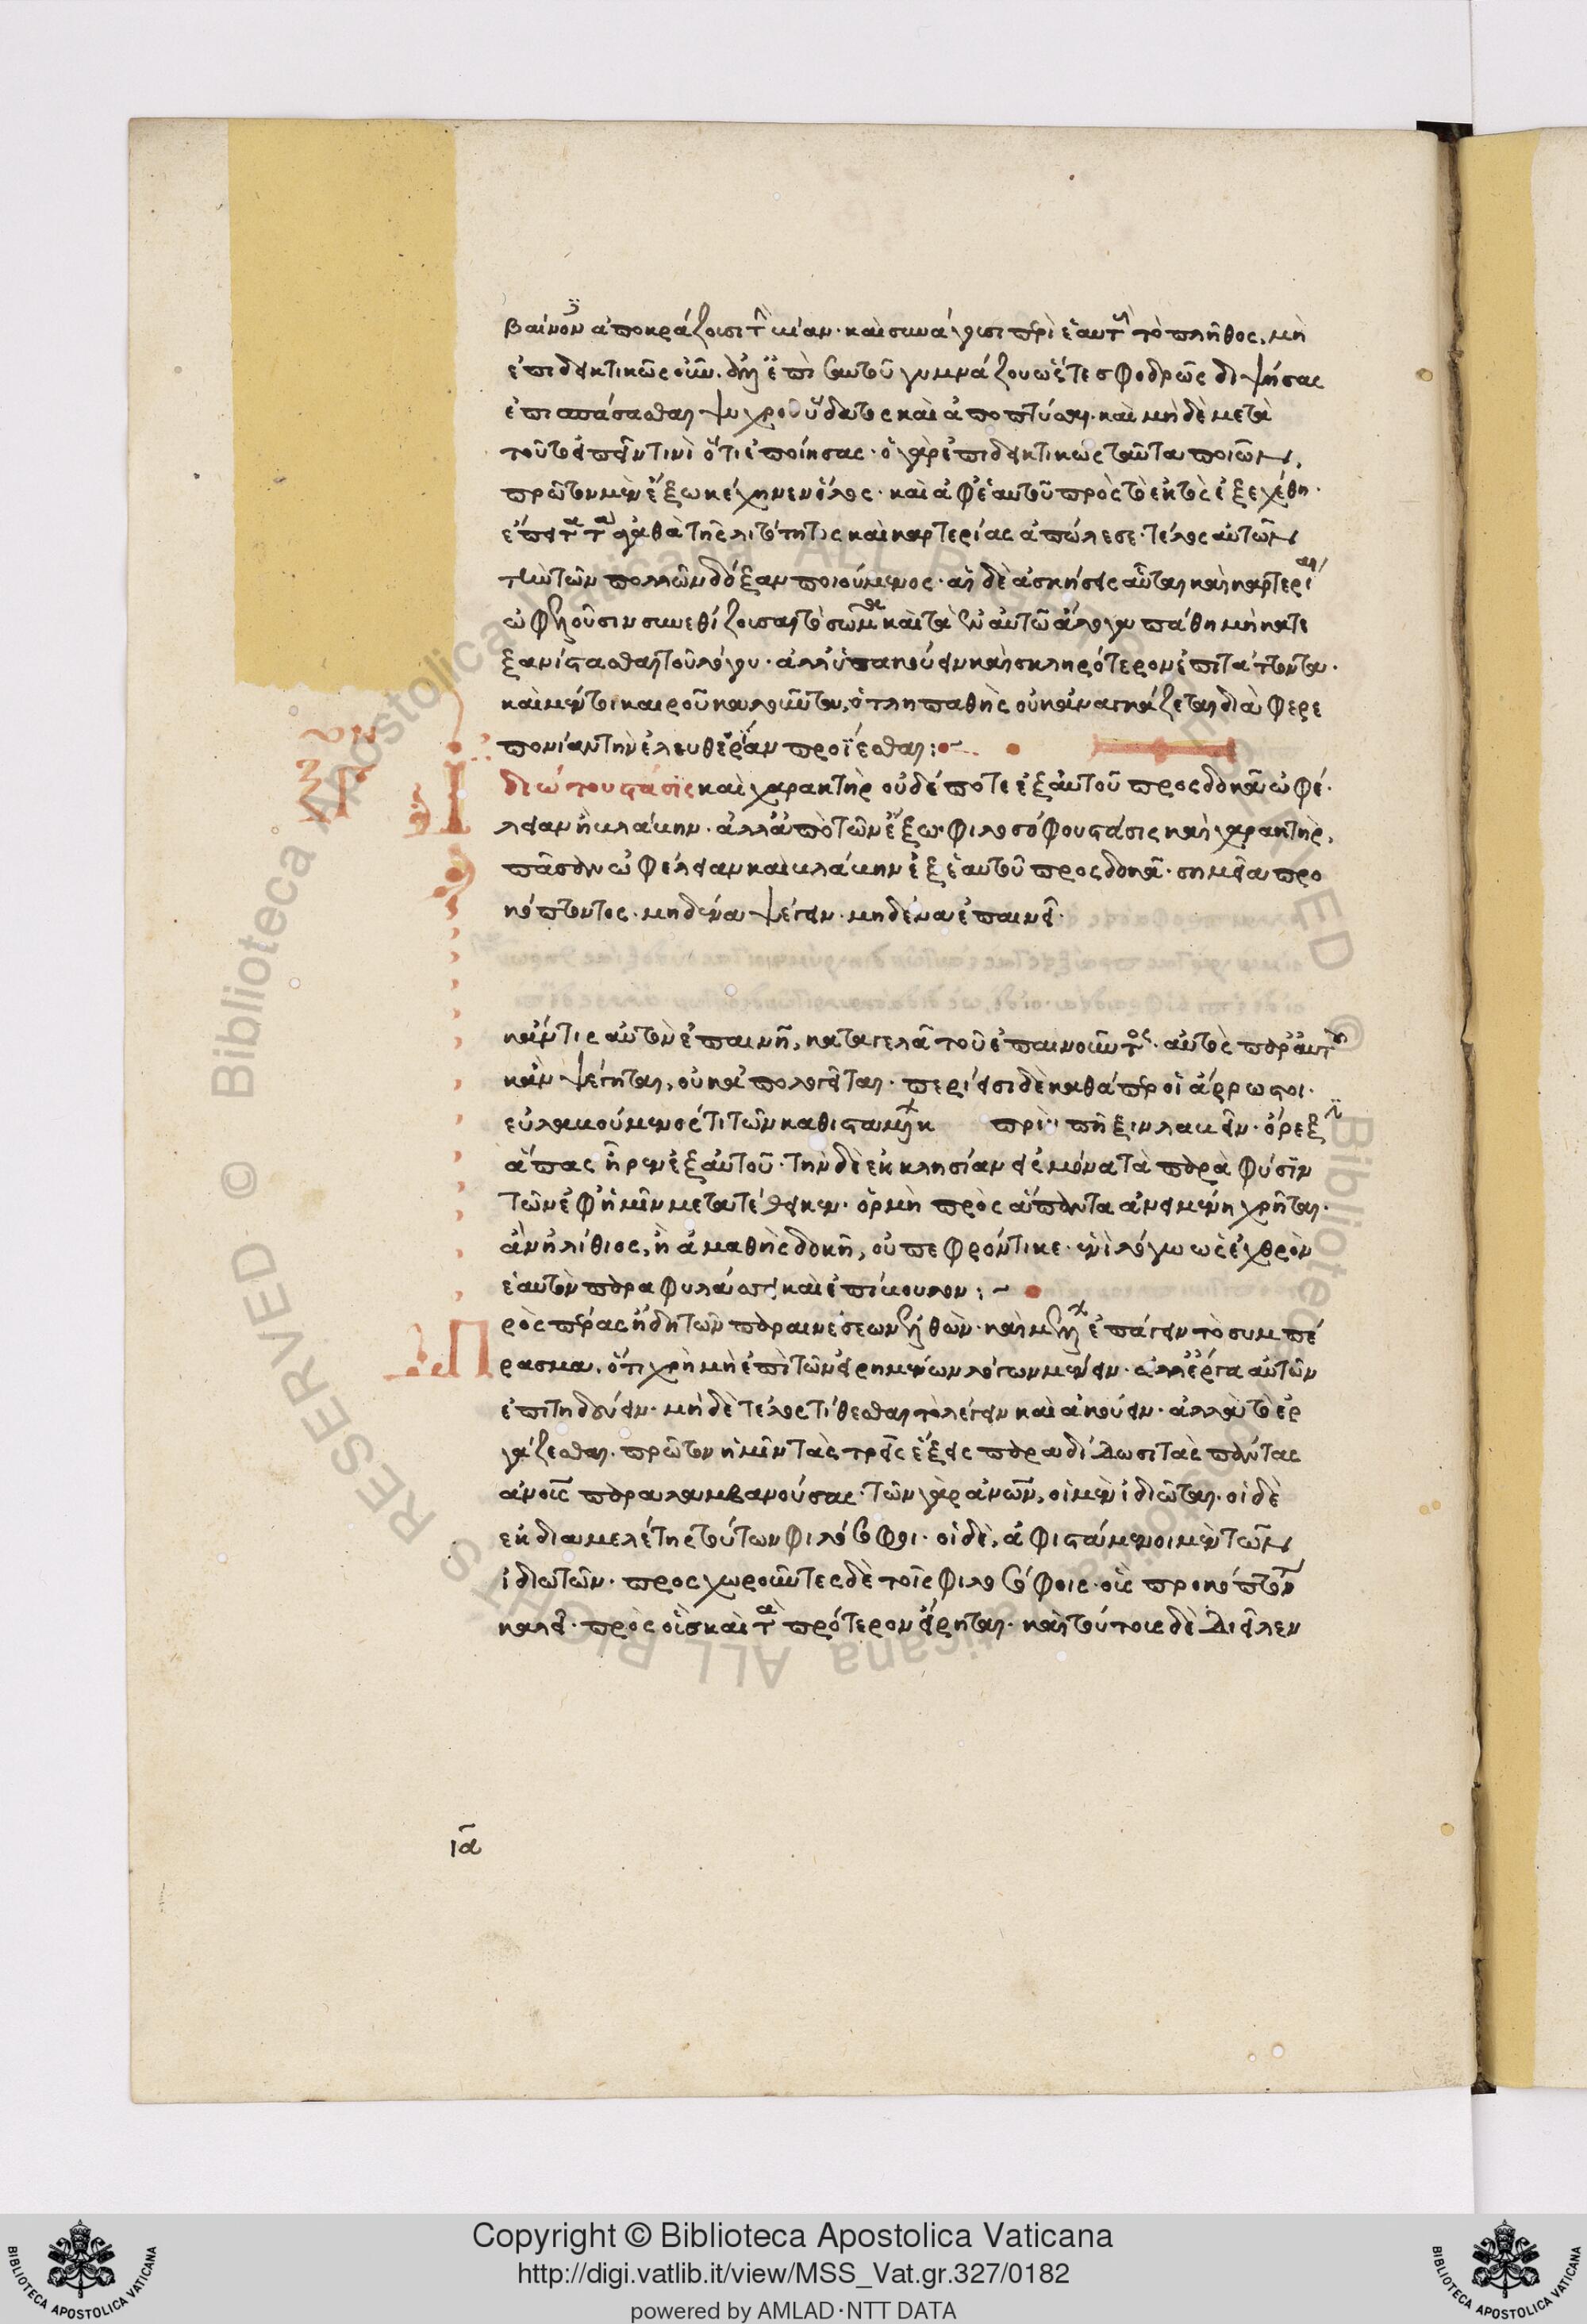 βαίνουσι ἀποκράζουσι τὴν βίαν· καὶ συνάγουσι περὶ ἑαυτοὺς τὸ πλῆθος, μὴ
ἐπιδεικτικῶς οὖν. δεῖ ἐπὶ σαυτοῦ γυμνάζου ὥστε σφοδρῶς διψήσας
ἐπισπάσασθαι ψυχροῦ ὕδατος καὶ ἀποπτύσαι· καὶ μηδὲ μετὰ
τοῦτο εἰπεῖν τινὶ ὅτι ἐποίησας· ὁ γὰρ ἐπιδεικτικῶς ταῦτα ποιῶν,
πρῶτον μὲν ἔξω κέχηνεν ὅλος· καὶ ἀφ' ἑαυτοῦ πρὸς τὸ ἐκτὸς ἐξεχέθη·
ἔπειτα τὰ ἀγαθὰ τῆς λιτότητος καὶ καρτερίας ἀπώλεσε· τέλος αὐτῶν
τὴν τῶν πολλῶν δόξαν ποιούμενος· αἱ δὲ ἀσκήσεις αὗται καὶ καρτερίαι
ὠφελοῦσιν συνεθίζουσαι τὸ σῶμα καὶ τὰ ἐν αὐτῶ ἄλογα πάθη μὴ κατε
ξανίστασθαι τοῦ λόγου· ἀλλ' ὑπακούειν καὶ σκληρότερον ἐπιτάττοντα·
καὶ μέντοι καιροῦ καλοῦντος, ὁ τληπαθὴς οὐκ ἀναγκάζεται διὰ φερε
πονίαν τὴν ἐλευθερίαν προΐεσθαι:
Ἰδιώτου στάσις καὶ χαρακτὴρ οὐδέποτε ἐξ αὐτοῦ προσδοκᾶ ὠφέ
λειαν ἢ βλάβην· ἀλλ' ἀπὸ τῶν ἔξω· φιλοσόφου στάσις καὶ χαρακτὴρ,
πᾶσαν ὠφέλειαν καὶ βλάβην ἐξ ἑαυτοῦ προσδοκᾶ· σημεῖα προ
κόπτοντος· μηδένα ψέγειν· μηδένα ἐπαινεῖ·
κἄν τις αὐτὸν ἐπαινῆ, καταγελᾶ τοῦ ἐπαινοῦντος· αὐτὸς παρ' αὑτῶ
κἂν ψέγηται, οὐκ ἀπολογεῖται· περίεισι δὲ καθάπερ οἱ ἄρρωστοι·
εὐλαβούμενός τι τῶν καθισταμένων κ πρὶν πῆξιν λαβεῖν· ὄρεξιν
ἅπας ἦρεν ἐξ αὑτοῦ· τὴν δὲ ἐκκλησίαν εἰς μόνα τὰ παρὰ φύσιν
τῶν ἐφ' ἡμῖν μετατέθεικεν· ὁρμῆ πρὸς ἅπαντα ἀνειμένη χρῆται·
ἂν ἠλίθιος, ἢ ἀμαθὴς δοκῆ, οὐ πεφρόντικε· ἑνὶ λόγω ὡς ἐχθρὸν
ἑαυτὸν παραφυλάσσει καὶ ἐπίβουλον:
Πρὸς πέρας ἤδη τῶν παραινέσεων ἐλθὼν· καὶ μέλλων ἐπάγειν τὸ συμπέ
ρασμα, ὅτι χρὴ μὴ ἐπὶ τῶν εἰρημένων λόγων μένειν· ἀλλ' ἔργα αὐτῶν
ἐπιτηδεύειν· μηδὲ τέλος τίθεσθαι τὸ λέγειν καὶ ἀκούειν· ἀλλὰ τὸ ἐρ
γάζεσθαι· πρῶτον ἡμῖν τὰς τρεῖς ἕξεις παραδίδωσι τὰς πάντας
ἀνοις παραλαμβανούσας· τῶν γὰρ ἀνων, οἱ μὲν ἰδιῶται· οἱ δὲ
ἐκ διαμελέτης τούτων φιλόσοφοι· οἱ δὲ, ἀφιστάμενοι μὲν τῶν
ἰδιωτῶν· προσχωροῦντες δὲ τοῖς φιλοσόφοις· οὓς προκόπτοντας
καλεῖ· πρὸς οὓς καὶ τὰ πρότερον εἴρηται· καὶ τούτοις δὲ διεῖλεν
ια
Copyright © Biblioteca Apostolica Vaticana
http://digi.vatlib.it/view/MSS_Vat.gr.327/0182
powered by AMLAD·NTT DATA